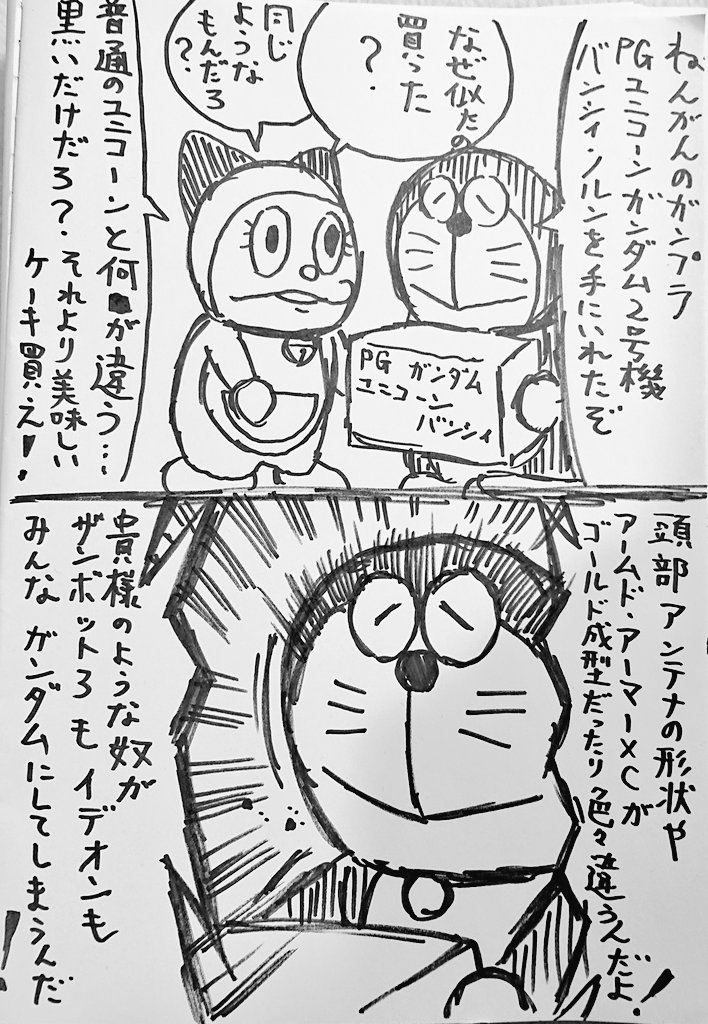 ねんがんのガンプラ
PGユニコーンガンダム2号機
バンシィ・ノルンを手にいれたぞ
なぜ似たの
買った
?
同じ
ような
もんだろ
?
普通のユニコーンと何が違う…
黒いだけだろ?それより美味しい
ケーキ買え!
PG ガンダム
ユニコーン
バンシィ
頭部アンテナの形状や
アームド・アーマーXCが
ゴールド成型だったり色々違うんだよ!
貴様のような奴が
ザンボット3もイデオンも
みんなガンダムにしてしまうんだ!